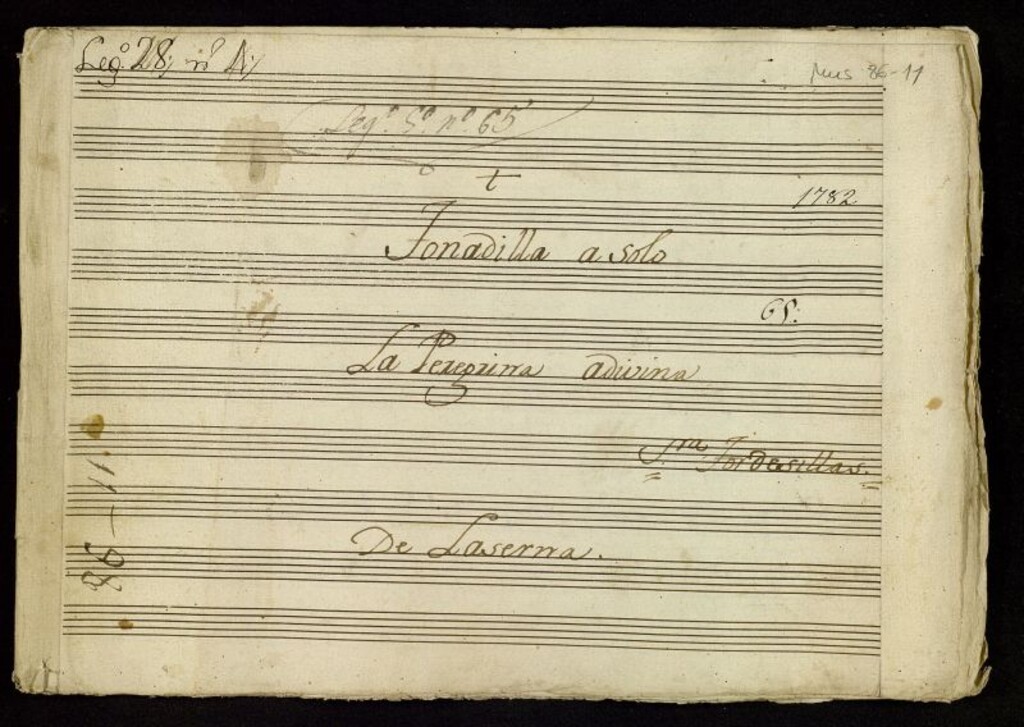 Leg.º 28, nº 4,,
Mus 86-11
Legº. 5º. nº. 65
1782
Tonadilla a solo
65.
La Peregrina adivina
Sra. Tordesillas.
De Laserna.
86-11.